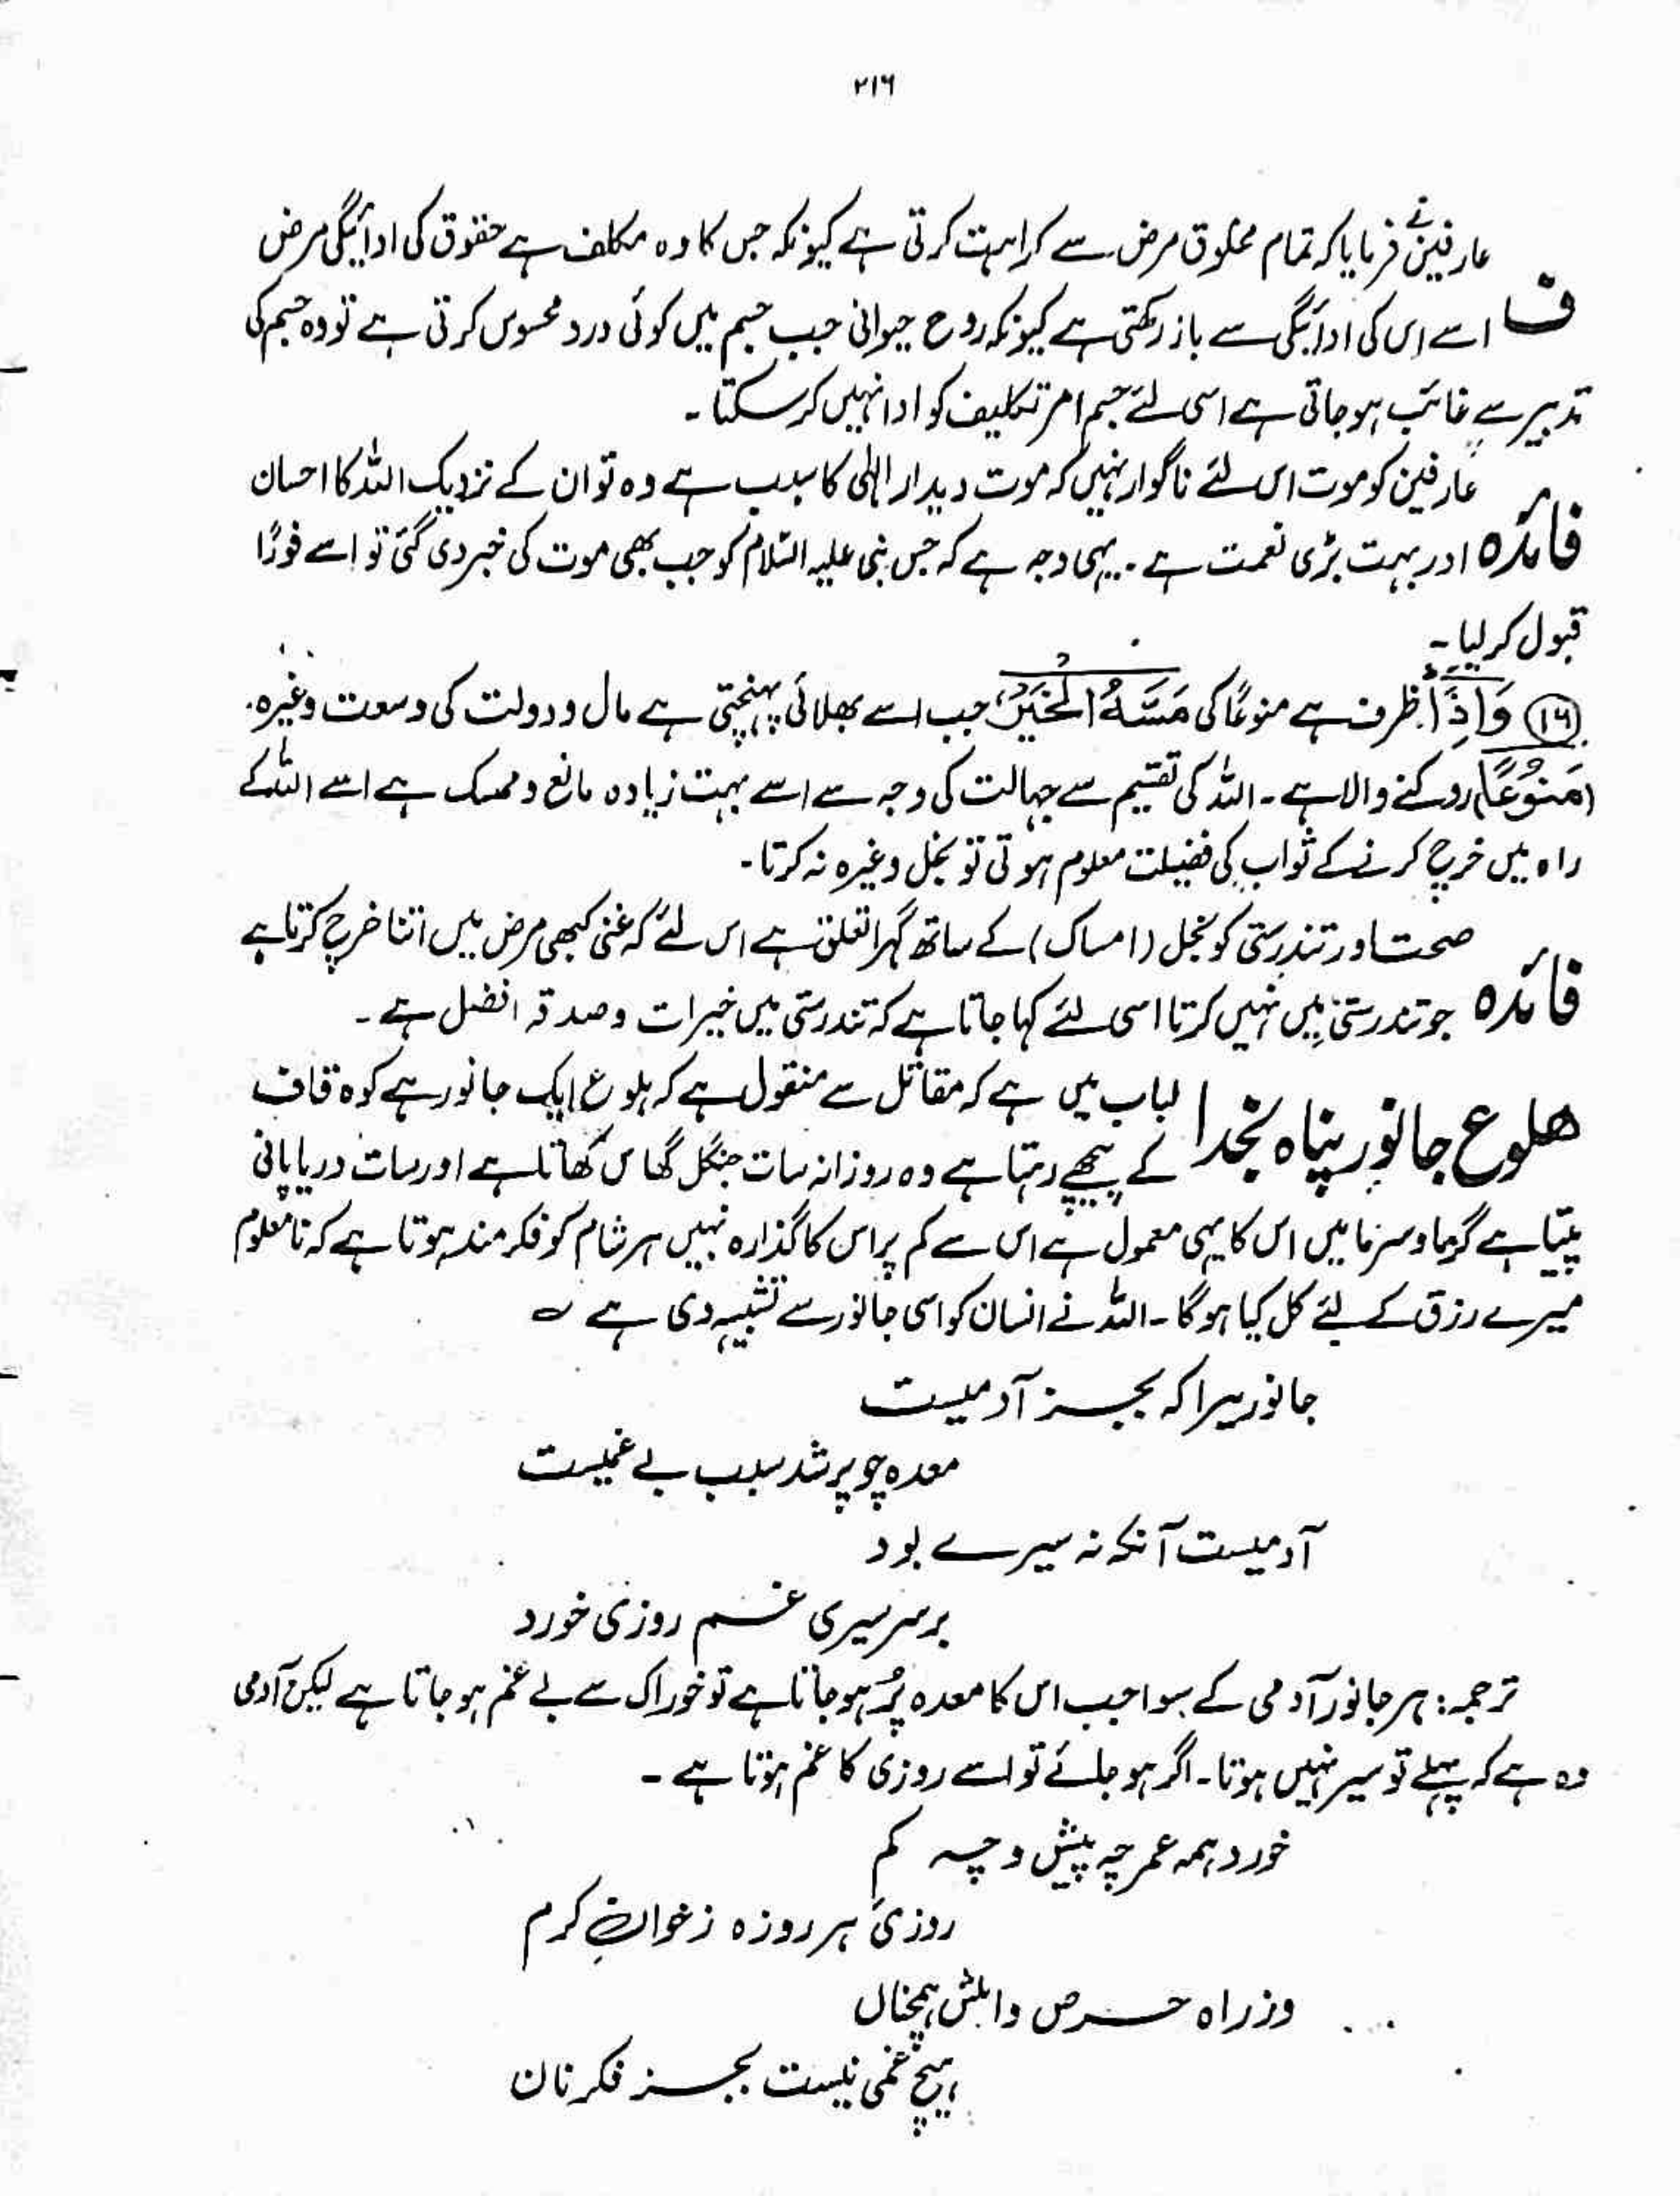 ۲۱۶
عارفین نے فرمایا کہ تمام مخلوق مرض سے کراہت کرتی ہے کیونکہ جس کا وہ مکلف ہے حقوق کی ادائیگی مرض
ف اسے اس کی ادائیگی سے باز رکھتی ہے کیونکہ روح حیوانی جب جسم میں کوئی درد محسوس کرتی ہے تو وہ جسم کی
تدبیر سے غائب ہو جاتی ہے اسی لئے جسم امر تکلیف کو ادا نہیں کر سکتا ۔
عارفین کو موت اس لئے ناگوار نہیں کہ موت دیدار الٰہی کا سبب ہے وہ تو ان کے نزدیک اللہ کا احسان
فائدہ اور بہت بڑی نعمت ہے ۔ یہی وجہ ہے کہ جس نبی علیہ السلام کو جب بھی موت کی خبر دی گئی تو اسے فورًا
قبول کر لیا ۔
(۱۶) وَاِذَا ظرف ہے منوعًا کی مَسَّهُ الْخَيْرُ جب اسے بھلائی پہنچتی ہے مال و دولت کی وسعت وغیرہ ۔
(مَنُوْعًا) روکنے والا ہے ۔ اللہ کی تقسیم سے جہالت کی وجہ سے اسے بہت زیادہ مانع و ممسک ہے اسے اللہ کے
راہ میں خرچ کرنے کے ثواب کی فضیلت معلوم ہوتی تو بخل وغیرہ نہ کرتا ۔
صحت اور تندرستی کو بخل (امساک) کے ساتھ گہرا تعلق ہے اس لئے کہ غنی کبھی مرض میں اتنا خرچ کرتا ہے
فائدہ جو تندرستی میں نہیں کرتا اسی لئے کہا جاتا ہے کہ تندرستی میں خیرات و صدقہ افضل ہے ۔
ھلوع جانور پناہ بخدا لباب میں ہے کہ مقاتل سے منقول ہے کہ ہلوع ایک جانور ہے کوہ قاف
کے پیچھے رہتا ہے وہ روزانہ سات جنگل گھاس کھاتا ہے اور سات دریا پانی
پیتا ہے گرما و سرما میں اس کا یہی معمول ہے اس سے کم پر اس کا گذارہ نہیں ہر شام کو فکر مند ہوتا ہے کہ نامعلوم
میرے رزق کے لئے کل کیا ہوگا ۔ اللہ نے انسان کو اسی جانور سے تشبیہ دی ہے ؎
جانور یرا کہ بجز آدمیست
معدہ چو پر شد سبب بے غمیست
آدمیست آنکہ نہ سیرے بود
برسر سیری غم روزی خورد
ترجمہ: ہر جانور آدمی کے سوا جب اس کا معدہ پُر ہو جاتا ہے تو خوراک سے بے غم ہو جاتا ہے لیکن آدمی
وہ ہے کہ پہلے تو سیر نہیں ہوتا ۔ اگر ہو جائے تو اسے روزی کا غم ہوتا ہے ۔
خورد ہمہ عمر چہ بیش و چہ کم
روزئ ہر روزہ زخوانِ کرم
وز راہ حرص و املش ہمچناں
ہیچ غمی نیست بجز فکر نان